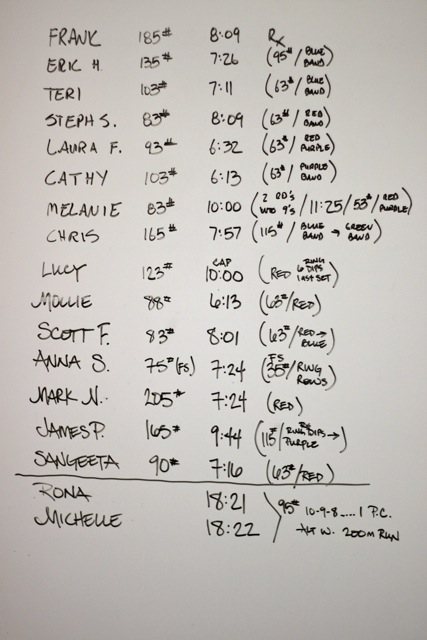 FRANK 185# 8:09 Rx
ERIC H. 135# 7:26 (95#/BLUE BAND)
TERI 103# 7:11 (63#/BLUE BAND)
STEPH S. 83# 8:09 (63#/RED BAND)
LAURA F. 93# 6:32 (63#/RED PURPLE)
CATHY 103# 6:13 (63#/PURPLE BAND)
MELANIE 83# 10:00 (2 RD'S W/O 9'S/11:25/53#/RED PURPLE)
CHRIS 165# 7:57 (115#/BLUE BAND → GREEN BAND)
LUCY 123# CAP 10:00 (RED RING 6 DIPS LAST SET)
MOLLIE 88# 6:13 (63#/RED)
SCOTT F. 83# 8:01 (63#/RED → BLUE)
ANNA S. 75#(FS) 7:24 (FS 35#/RING ROWS)
MARK N. 205# 7:24 (RED)
JAMES P. 165# 9:44 (115#/Rx RING DIPS → PURPLE)
SANGEETA 90# 7:16 (63#/RED)
RONA 18:21
MICHELLE 18:22
95# 10-9-8....1 P.C.
ALT W. 200M RUN